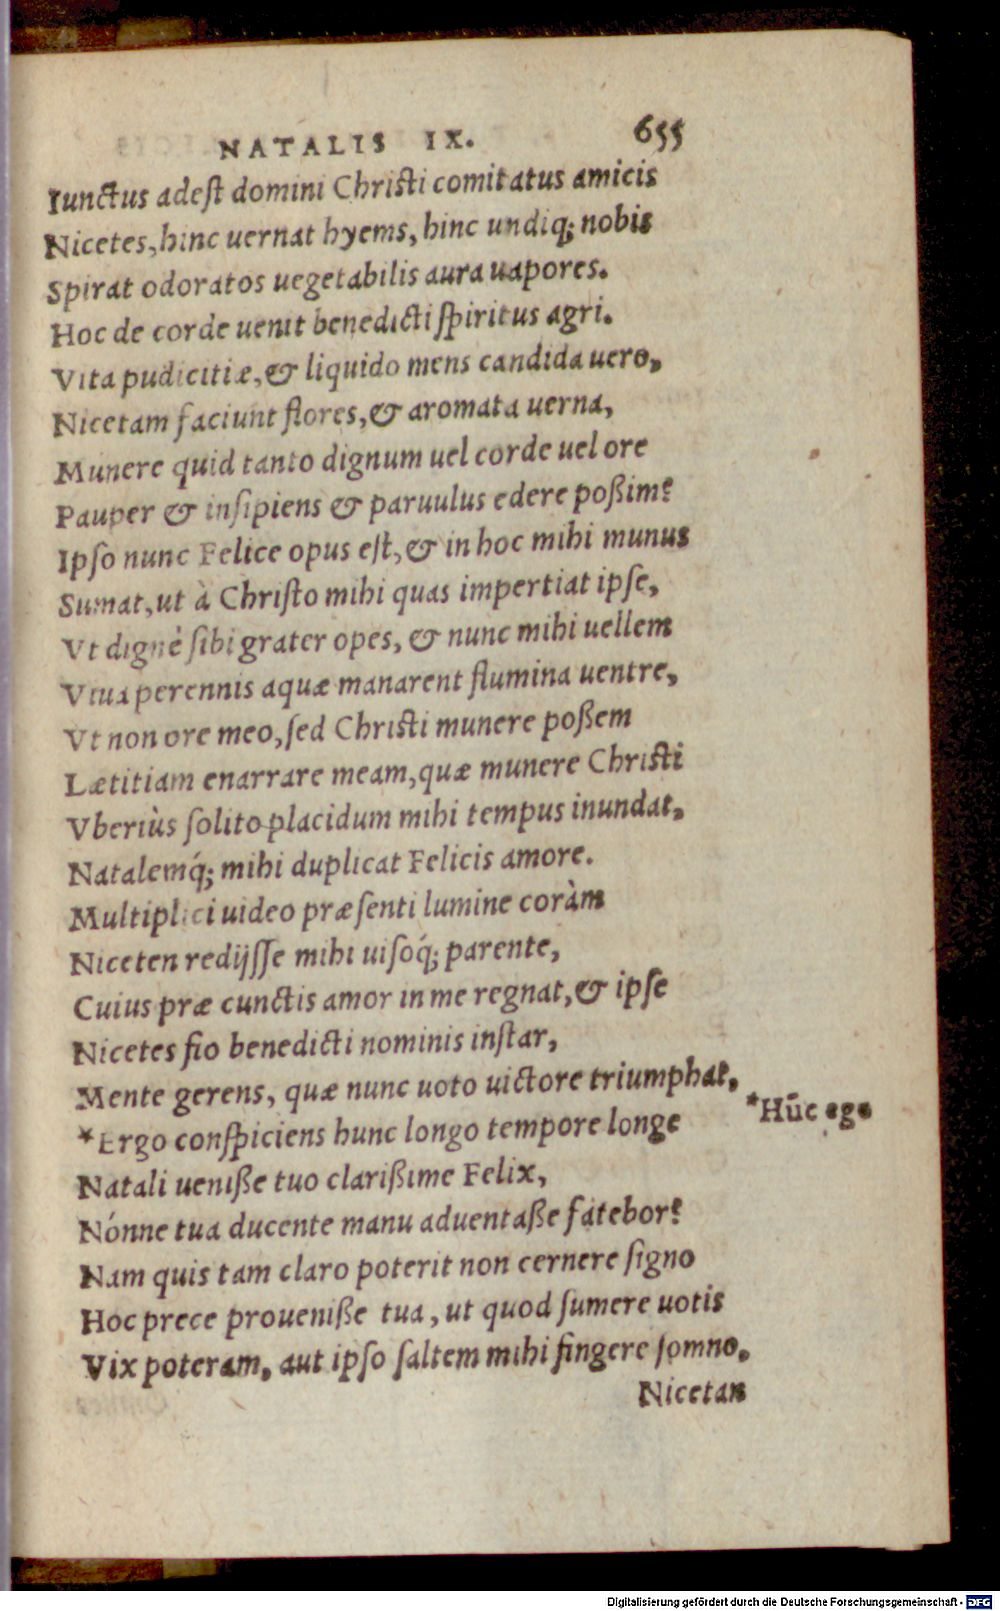 NATALIS IX. 655
Iunctus adest domini Christi comitatus amicis
Nicetes, hinc uernat hyems, hinc undiq; nobis
Spirat odoratos uegetabilis aura uapores.
Hoc de corde uenit benedicti spiritus agri.
Vita pudicitiæ, & liquido mens candida uero,
Nicetam faciunt flores, & aromata uerna,
Munere quid tanto dignum uel corde uel ore
Pauper & insipiens & paruulus edere poßim?
Ipso nunc Felice opus est, & in hoc mihi munus
Sumat, ut à Christo mihi quas impertiat ipse,
Vt dignè sibi grater opes, & nunc mihi uellem
Viua perennis aquæ manarent flumina uentre,
Vt non ore meo, sed Christi munere poßem
Lætitiam enarrare meam, quæ munere Christi
Vberiùs solito placidum mihi tempus inundat,
Natalemq́; mihi duplicat Felicis amore.
Multiplici uideo præsenti lumine coràm
Niceten redijsse mihi uisoq́; parente,
Cuius præ cunctis amor in me regnat, & ipse
Nicetes fio benedicti nominis instar,
Mente gerens, quæ nunc uoto uictore triumphat,
*Hūc ego
*Ergo conspiciens hunc longo tempore longe
Natali ueniße tuo clarißime Felix,
Nónne tua ducente manu aduentaße fatebor?
Nam quis tam claro poterit non cernere signo
Hoc prece proueniße tua, ut quod sumere uotis
Vix poteram, aut ipso saltem mihi fingere somno,
Nicetan
Digitalisierung gefördert durch die Deutsche Forschungsgemeinschaft - DFG